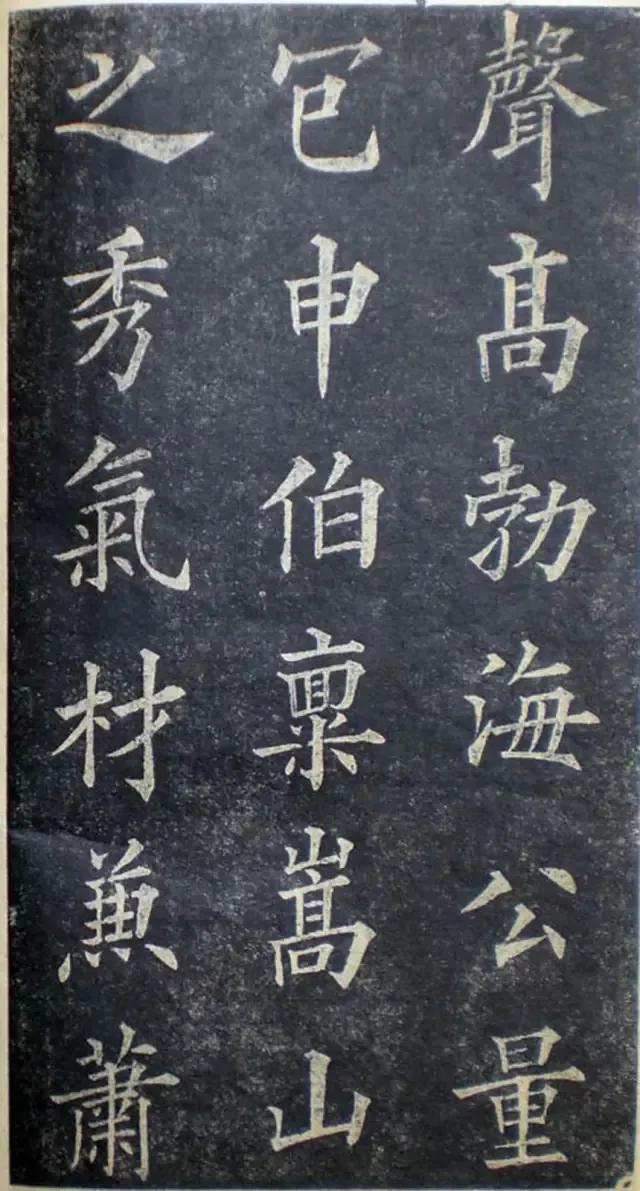 聲高勃海公量
包申伯禀嵩山
之秀氣材兼蕭